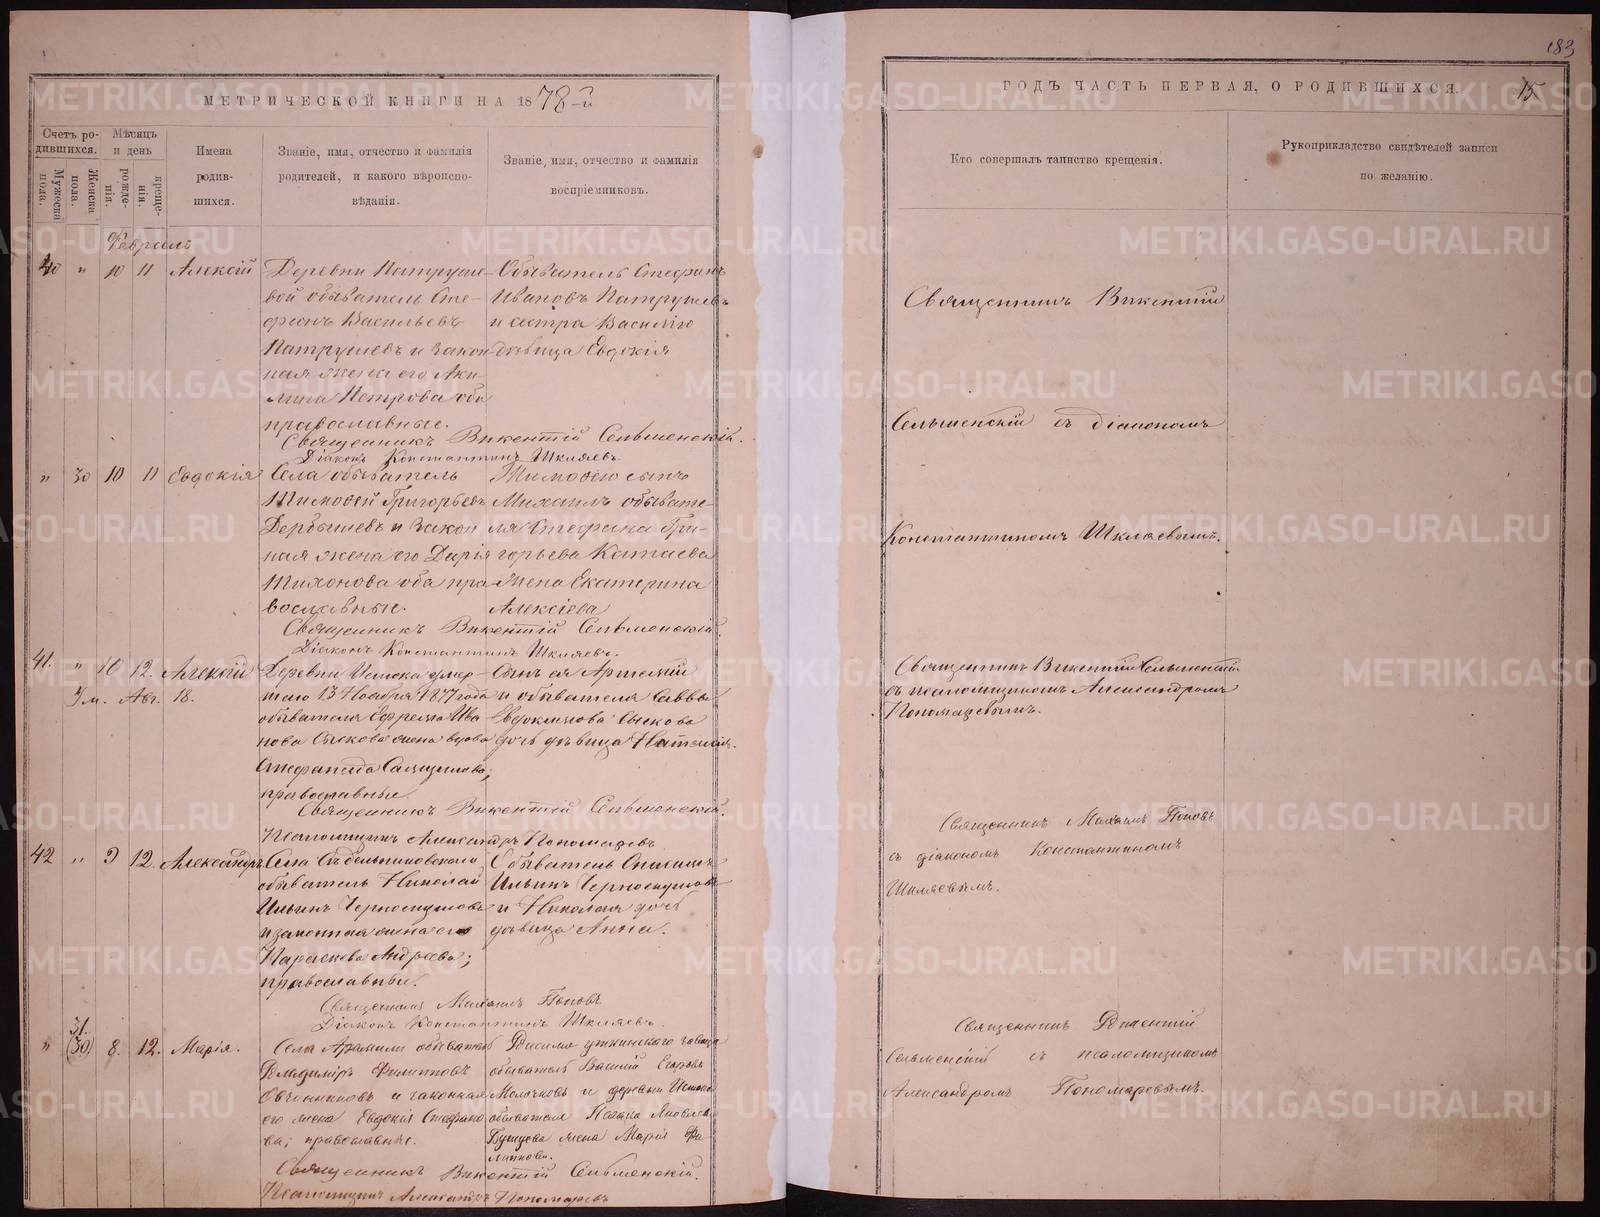 183
МЕТРИЧЕСКОЙ КНИГИ НА 1878-й
ГОДЪ ЧАСТЬ ПЕРВАЯ, О РОДИВШИХСЯ.
15
Счетъ родившихся.
Мужеска пола.
Женска пола.
Мѣсяцъ и день
рожденія.
крещенія.
Имена родившихся.
Званіе, имя, отчество и фамилія
родителей, и какого вѣроисповѣданія.
Званіе, имя, отчество и фамилія
воспріемниковъ.
Кто совершалъ таинство крещенія.
Рукоприкладство свидѣтелей записи
по желанію.
Февраль
40 " 10 11 Алексій
Деревни Патруше-
вой обыватель Сте-
фанъ Васильевъ
Патрушевъ и закон
ная жена его Аки-
лина Петрова оба
православные.
Обыватель Стефанъ
Ивановъ Патрушевъ
и сестра Василію
дѣвица Евдокія
Священникъ Викентій Сельменскій.
Діаконъ Константинъ Шкляевъ.
Священникъ Викентій
Сельменскій съ діакономъ
Константиномъ Шкляевымъ.
" 30 10 11 Евдокія
Села обыватель
Тимофей Григорьевъ
Дербышевъ и закон
ная жена его Дарія
Тихонова оба пра
вославные.
Тимофею сынъ
Михаилъ обывате-
ля Стефана Гри-
горьева Катаева
жена Екатерина
Алексіева
Священникъ Викентій Сельменскій.
Діаконъ Константинъ Шкляевъ.
41. " 10 12. Алексій
Ум. Авг. 18.
Деревни Истока умер-
шаго 13 Ноября 1877 года
обывателя Ефрема Ива
нова Сыскова жена вдова
Стефанида
православные
Сынъ ея Артемій
и обывателя Саввы
Евдокимова Сыскова
дочь дѣвица Наталія.
Священникъ Викентій Сельменскій.
Псаломщикъ Александръ Пономаревъ
Священникъ Викентій Сельменскій
съ псаломщикомъ Александромъ
Пономаревымъ.
42 " 9 12. Александръ
Села
обыватель Николай
Ильинъ Черноскутовъ
и законная жена его
Параскева Андреева;
православные.
Обыватель
Ильинъ Черноскутовъ
и Николая дочь
дѣвица Анна.
Священникъ Михаилъ Поповъ
Діаконъ Константинъ Шкляевъ.
Священникъ Михаилъ Поповъ
съ діакономъ Константиномъ
Шкляевымъ.
31.
" (30) 8. 12. Марія.
Села Арамили обыватель
Владиміръ Филипповъ
Овчинниковъ и законная
его жена Евдокія Стефано
ва; православные.
уткинского завода
обыватель Василій Егоровъ
Молочковъ и деревни Истока
обывателя Яковлева
жена Марія Фи
липпова.
Священникъ Викентій Сельменскій.
Псаломщикъ Александръ Пономаревъ
Священникъ Викентій
Сельменскій съ псаломщикомъ
Александромъ Пономаревымъ.
METRIKI.GASO-URAL.RU